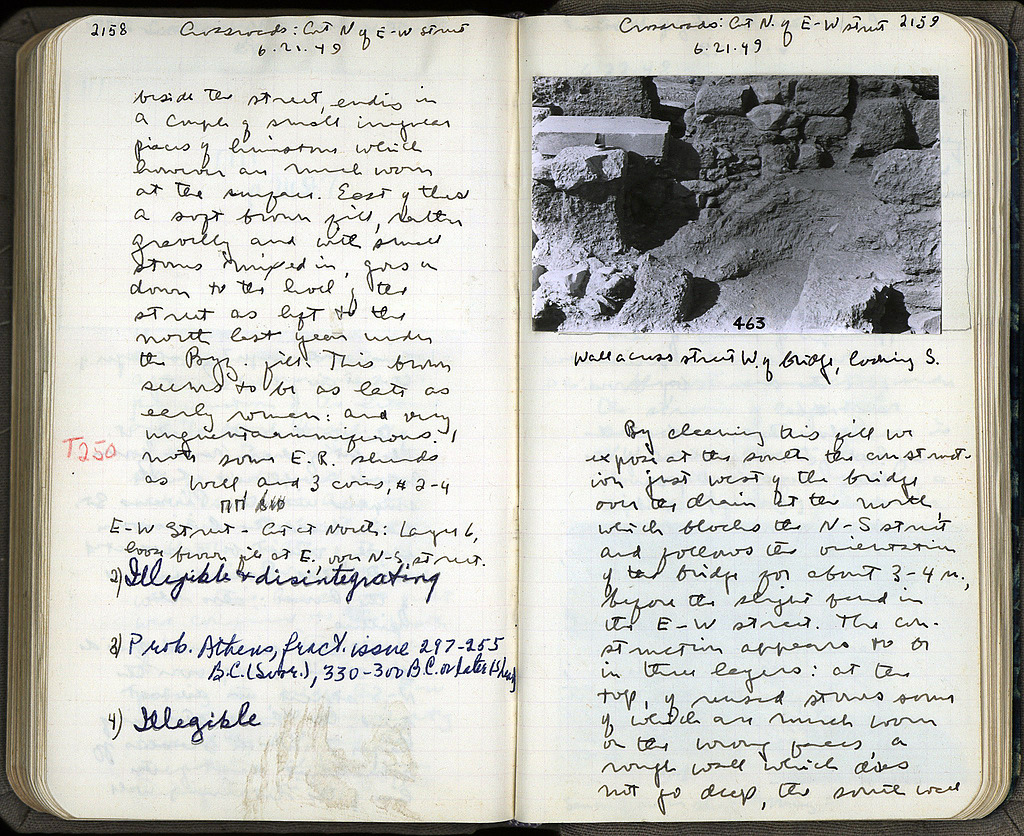 2158 Crossroads: Cut N of E-W Street
6.21.49
beside the street, ending in
a couple of small irregular
pieces of limestone which
however are much worn
at the surface. East of this
a soft brown fill, rather
gravelly and with small
stones mixed in, goes on
down to the level of the
street as left to the
north last year under
the Byz. fill. This brown
seems to be as late as
early roman: and very
unguentariumiferous.
T250
note some E.R. sherds
as well and 3 coins, #2-4
E-W Street - Cut at North: Layer 6,
loose brown fill at E. over N-S street.
2) Illegible & disintegrating
3) Prob. Athens, fract. issue 297-255
B.C. (Svor.), 330-300 B.C. or later
4) Illegible
Crossroads: Cut N. of E-W street 2159
6.21.49
463
Wall across street W. of bridge, looking S.
By cleaning this fill we
expose at the south the construct-
ion just west of the bridge
over the drain at the north,
which blocks the N-S street
and follows the orientation
of the bridge for about 3-4 m.,
before the slight bend in
the E-W street. The con-
struction appears to be
in three layers: at the
top, of reused stones some
of which are much worn
on the wrong faces, a
rough wall which does
not go deep, the south wall